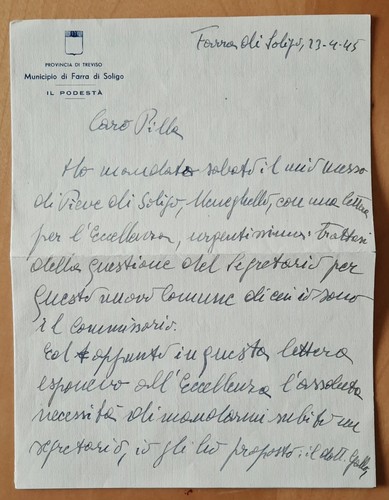 PROVINCIA DI TREVISO
Municipio di Farra di Soligo
IL PODESTÀ
Farra di Soligo, 23-4-45
Caro Pilla
Ho mandato sabato il mio messo
di Pieve di Soligo, Meneghello, con una lettera
per l'Eccellenza, urgentissima. Trattasi
della questione del Segretario per
questo nuovo Comune di cui io sono
il Commissario.
Ed appunto in questa lettera
esponevo all'Eccellenza l'assoluta
necessità di mandarmi subito un
segretario, io gli ho proposto: il dott.